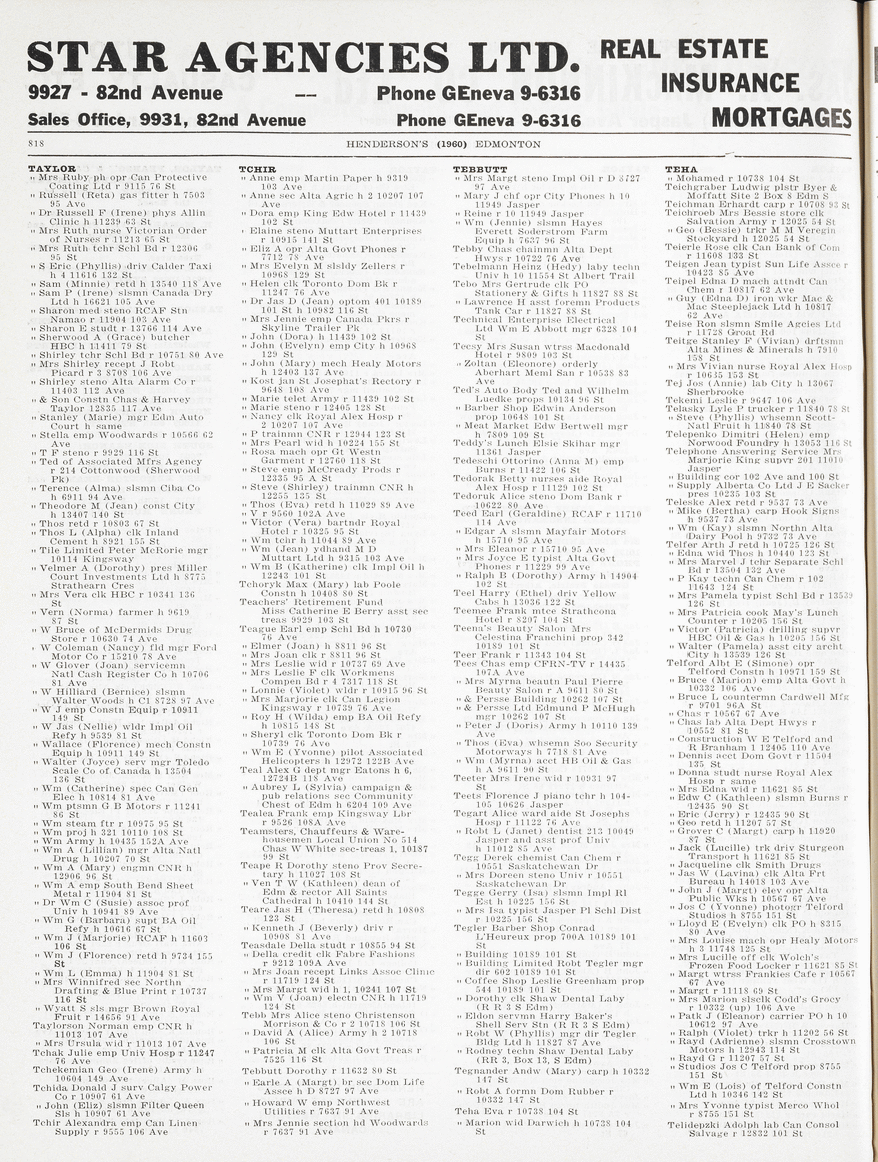 STAR AGENCIES LTD. REAL ESTATE
9927 - 82nd Avenue — Phone GEneva 9-6316 INSURANCE
Sales Office, 9931, 82nd Avenue Phone GEneva 9-6316 MORTGAGES
818 HENDERSON'S (1960) EDMONTON
TAYLOR
" Mrs Ruby ph opr Can Protective
Coating Ltd r 9115 76 St
" Russell (Reta) gas fitter h 7503
95 Ave
" Dr Russell F (Irene) phys Allin
Clinic h 11239 63 St
" Mrs Ruth nurse Victorian Order
of Nurses r 11213 65 St
" Mrs Ruth tchr Schl Bd r 12306
95 St
" S Eric (Phyllis) driv Calder Taxi
h 4 11616 132 St
" Sam (Minnie) retd h 13540 118 Ave
" Sam P (Irene) slsmn Canada Dry
Ltd h 16621 105 Ave
" Sharon med steno RCAF Stn
Namao r 11904 103 Ave
" Sharon E studt r 13766 114 Ave
" Sherwood A (Grace) butcher
HBC h 11411 79 St
" Shirley tchr Schl Bd r 10751 80 Ave
" Mrs Shirley recept J Robt
Picard r 3 8708 106 Ave
" Shirley steno Alta Alarm Co r
11403 112 Ave
" & Son Constn Chas & Harvey
Taylor 12835 117 Ave
" Stanley (Marie) mgr Edm Auto
Court h same
" Stella emp Woodwards r 10566 62
Ave
" T F steno r 9929 116 St
" Ted of Associated Mfrs Agency
r 214 Cottonwood (Sherwood
Pk)
" Terence (Alma) slsmn Ciba Co
h 6911 94 Ave
" Theodore M (Jean) const City
h 13407 140 St
" Thos retd r 10803 67 St
" Thos L (Alpha) clk Inland
Cement h 8921 155 St
" Tile Limited Peter McRorie mgr
10114 Kingsway
" Velmer A (Dorothy) pres Miller
Court Investments Ltd h 8775
Strathearn Cres
" Mrs Vera clk HBC r 10341 136
St
" Vern (Norma) farmer h 9619
87 St
" W Bruce of McDermids Drug
Store r 10630 74 Ave
" W Coleman (Nancy) fld mgr Ford
Motor Co r 15210 78 Ave
" W Glover (Joan) servicemn
Natl Cash Register Co h 10706
81 Ave
" W Hilliard (Bernice) slsmn
Walter Woods h C1 8728 97 Ave
" W J emp Constn Equip r 10911
149 St
" W Jas (Nellie) wldr Impl Oil
Refy h 9539 81 St
" Wallace (Florence) mech Constn
Equip h 10911 149 St
" Walter (Joyce) serv mgr Toledo
Scale Co of Canada h 13504
136 St
" Wm (Catherine) spec Can Gen
Elec h 10814 81 Ave
" Wm ptsmn G B Motors r 11241
86 St
" Wm steam ftr r 10975 95 St
" Wm proj h 321 10110 108 St
" Wm Army h 10435 152A Ave
" Wm A (Lillian) mgr Alta Natl
Drug h 10207 70 St
" Wm A (Mary) engmn CNR h
12906 96 St
" Wm A emp South Bend Sheet
Metal r 11904 81 St
" Dr Wm C (Susie) assoc prof
Univ h 10941 89 Ave
" Wm G (Barbara) supt BA Oil
Refy h 10616 67 St
" Wm J (Marjorie) RCAF h 11603
106 St
" Wm J (Florence) retd h 9734 155
St
" Wm L (Emma) h 11904 81 St
" Mrs Winnifred sec Northn
Drafting & Blue Print r 10737
116 St
" Wyatt S sls mgr Brown Royal
Fruit r 14656 91 Ave
Taylorson Norman emp CNR h
11013 107 Ave
" Mrs Ursula wid r 11013 107 Ave
Tchak Julie emp Univ Hosp r 11247
76 Ave
Tchekemian Geo (Irene) Army h
10604 149 Ave
Tchida Donald J surv Calgy Power
Co r 10907 61 Av
" John (Eliz) slsmn Filter Queen
Sls h 10907 61 Av
Tchir Alexandra emp Can Linen
Supply r 9555 106 Ave
TCHIR
" Anne emp Martin Paper h 9319
103 Ave
" Anne sec Alta Agric h 2 10207 107
Ave
" Dora emp King Edw Hotel r 11439
102 St
" Elaine steno Muttart Enterprises
r 10915 141 St
" Eliz A opr Alta Govt Phones r
7712 78 Ave
" Mrs Evelyn M slsldy Zellers r
10968 129 St
" Helen clk Toronto Dom Bk r
11247 76 Ave
" Dr Jas D (Jean) optom 401 10189
101 St h 10982 116 St
" Mrs Jennie emp Canada Pkrs r
Skyline Trailer Pk
" John (Dora) h 11439 102 St
" John (Evelyn) emp City h 10968
129 St
" John (Mary) mech Healy Motors
h 12403 137 Ave
" Kost jan St Josephat's Rectory r
9648 108 Ave
" Marie telet Army r 11439 102 St
" Marie steno r 12405 128 St
" Nancy clk Royal Alex Hosp r
2 10207 107 Ave
" P trainmn CNR r 12944 123 St
" Mrs Pearl wid h 10224 155 St
" Rosa mach opr Gt Westn
Garment r 12760 118 St
" Steve emp McCready Prods r
12335 95 A St
" Steve (Shirley) trainmn CNR h
12255 135 St
" Thos (Eva) retd h 11029 89 Ave
" V r 9560 102A Ave
" Victor (Vera) bartndr Royal
Hotel r 10325 95 St
" Wm tchr h 11044 89 Ave
" Wm (Jean) ydhand M D
Muttart Ltd h 9315 103 Ave
" Wm B (Katherine) clk Impl Oil h
12243 101 St
Tchoryk Max (Mary) lab Poole
Constn h 10408 80 St
Teachers' Retirement Fund
Miss Catherine E Berry asst sec
treas 9929 103 St
Teague Earl emp Schl Bd h 10730
76 Av
" Elmer (Joan) h 8811 96 St
" Mrs Joan clk r 8811 96 St
" Mrs Leslie wid r 10737 69 Ave
" Mrs Leslie F clk Workmens
Compen Bd r 4 7317 118 St
" Lonnie (Violet) wldr r 10915 96 St
" Mrs Marjorie clk Can Legion
Kingsway r 10739 76 Ave
" Roy H (Wilda) emp BA Oil Refy
h 10815 148 St
" Sheryl clk Toronto Dom Bk r
10739 76 Ave
" Wm E (Yvonne) pilot Associated
Helicopters h 12972 122B Ave
Teal Alex G dept mgr Eatons h 6,
12724B 118 Ave
" Aubrey L (Sylvia) campaign &
pub relations sec Community
Chest of Edm h 6204 109 Ave
Tealea Frank emp Kingsway Lbr
r 9526 108A Ave
Teamsters, Chauffeurs & Ware-
housemen Local Union No 514
Chas W White sec-treas 1, 10187
99 St
Teape R Dorothy steno Prov Secre-
tary h 11027 108 St
" Ven T W (Kathleen) dean of
Edm & rector All Saints
Cathedral h 10410 144 St
Teare Jas H (Theresa) retd h 10808
123 St
" Kenneth J (Beverly) driv r
10908 81 Ave
Teasdale Della studt r 10855 94 St
" Della credit clk Fabre Fashions
r 9212 109A Ave
" Mrs Joan recept Links Assoc Clinic
r 11719 124 St
" Mrs Margt wid h 1, 10241 107 St
" Wm V (Joan) electn CNR h 11719
124 St
Tebb Mrs Alice steno Christenson
Morrison & Co r 2 10718 106 St
" David A (Alice) Army h 2 10718
106 St
" Patricia M clk Alta Govt Treas r
7525 116 St
Tebbutt Dorothy r 11632 80 St
" Earle A (Margt) br sec Dom Life
Assce h D 8727 97 Ave
" Howard W emp Northwest
Utilities r 7637 91 Ave
" Mrs Jennie section hd Woodwards
r 7637 91 Ave
TEBBUTT
" Mrs Margt steno Impl Oil r D 8727
97 Ave
" Mary J chf opr City Phones h 10
11949 Jasper
" Reine r 10 11949 Jasper
" Wm (Jennie) slsmn Hayes
Everett Soderstrom Farm
Equip h 7637 96 St
Tebby Chas chainmn Alta Dept
Hwys r 10722 76 Av
Tebelmann Heinz (Hedy) laby techn
Univ h 10 11554 St Albert Trail
Tebo Mrs Gertrude clk PO
Stationery & Gifts h 11827 88 St
" Lawrence H asst foremn Products
Tank Car r 11827 88 St
Technical Enterprise Electrical
Ltd Wm E Abbott mgr 6328 104
St
Tecsy Mrs Susan wtrss Macdonald
Hotel r 9809 103 St
" Zoltan (Eleonore) orderly
Aberhart Meml San r 10538 83
Ave
Ted's Auto Body Ted and Wilhelm
Luedke props 10134 96 St
" Barber Shop Edwin Anderson
prop 10648 101 St
" Meat Market Edw Bertwell mgr
h 7809 109 St
Teddy's Lunch Elsie Skihar mgr
11361 Jasper
Tedeschi Ottorino (Anna M) emp
Burns r 11422 106 St
Tedorak Betty nurses aide Royal
Alex Hosp r 11129 102 St
Tedoruk Alice steno Dom Bank r
10622 80 Ave
Teed Earl (Geraldine) RCAF r 11710
114 Ave
" Edgar A slsmn Mayfair Motors
h 15710 95 Ave
" Mrs Eleanor r 15710 95 Ave
" Mrs Joyce E typist Alta Govt
Phones r 11229 99 Ave
" Ralph B (Dorothy) Army h 14904
102 St
Teel Harry (Ethel) driv Yellow
Cabs h 13036 122 St
Teemee Frank mtce Strathcona
Hotel r 8207 104 St
Teena's Beauty Salon Mrs
Celestina Franchini prop 342
10189 101 St
Teer Frank r 11343 104 St
Tees Chas emp CFRN-TV r 14435
107A Ave
" Mrs Myrna beautn Paul Pierre
Beauty Salon r A 9611 80 St
" & Persse Building 10262 107 St
" & Persse Ltd Edmund P McHugh
mgr 10262 107 St
" Peter J (Doris) Army h 10110 139
Ave
" Thos (Eva) whsemn Soo Security
Motorways h 7718 81 Ave
" Wm (Myrna) acct HB Oil & Gas
h A 9611 90 St
Teeter Mrs Irene wid r 10931 97
St
Teets Florence J piano tchr h 104-
105 10626 Jasper
Tegart Alice ward aide St Josephs
Hosp r 11122 76 Ave
" Robt L (Janet) dentist 213 10049
Jasper and asst prof Univ
h 11012 85 Ave
Tegg Derek chemist Can Chem r
10551 Saskatchewan Dr
" Mrs Doreen steno Univ r 10551
Saskatchewan Dr
Tegge Gerry (Isa) slsmn Impl Rl
Est h 10225 156 St
" Mrs Isa typist Jasper Pl Schl Dist
r 10225 156 St
Tegler Barber Shop Conrad
L'Heureux prop 700A 10189 101
St
" Building 10189 101 St
" Building Limited Robt Tegler mgr
dir 602 10189 101 St
" Coffee Shop Leslie Greenham prop
544 10189 101 St
" Dorothy clk Shaw Dental Laby
(R R 3 S Edm)
" Eldon servmn Harry Baker's
Shell Serv Stn (R R 3 S Edm)
" Robt W (Phyllis) mgr dir Tegler
Bldg Ltd h 11827 87 Ave
" Rodney techn Shaw Dental Laby
(RR 3, Box 13, S Edm)
Tegnander Andw (Mary) carp h 10332
147 St
" Robt A formn Dom Rubber r
10332 147 St
Teha Eva r 10738 104 St
" Marion wid Darwich h 10738 104
St
TEHA
" Mohamed r 10738 104 St
Teichgraber Ludwig plstr Byer &
Moffatt Site 2 Box 8 Edm S
Teichman Erhardt carp r 10708 93 St
Teichroeb Mrs Bessie store clk
Salvation Army r 12025 54 St
" Geo (Bessie) trkr M M Veregin
Stockyard h 12025 54 St
Teierle Rose clk Can Bank of Com
r 11608 133 St
Teigen Jean typist Sun Life Assce r
10423 85 Ave
Teipel Edna D mach attndt Can
Chem r 10817 62 Ave
" Guy (Edna D) iron wkr Mac &
Mac Steeplejack Ltd h 10817
62 Ave
Teise Ron slsmn Smile Agcies Ltd
r 11728 Groat Rd
Teitge Stanley F (Vivian) drftsmn
Alta Mines & Minerals h 7910
158 St
" Mrs Vivian nurse Royal Alex Hosp
r 10635 153 St
Tej Jos (Annie) lab City h 13067
Sherbrooke
Tekemi Leslie r 9647 106 Ave
Telasky Lyle P trucker r 11840 78 St
" Steve (Phyllis) whsemn Scott-
Natl Fruit h 11840 78 St
Telepenko Dimitri (Helen) emp
Norwood Foundry h 13053 116 St
Telephone Answering Service Mrs
Marjorie King supvr 201 11010
Jasper
" Building cor 102 Ave and 100 St
" Supply Alberta Co Ltd J E Sacker
pres 10235 103 St
Teleske Alex retd r 9537 73 Ave
" Mike (Bertha) carp Hook Signs
h 9537 73 Ave
" Wm (Kay) slsmn Northn Alta
Dairy Pool h 9732 73 Ave
Telfer Arth J retd h 10725 126 St
" Edna wid Thos h 10440 123 St
" Mrs Marvel J tchr Separate Schl
Bd r 13504 132 Ave
" P Kay techn Can Chem r 102
11643 124 St
" Mrs Pamela typist Schl Bd r 13539
126 St
" Mrs Patricia cook May's Lunch
Counter r 10205 156 St
" Victor (Patricia) drilling supvr
HBC Oil & Gas h 10205 156 St
" Walter (Pamela) asst city archt
City h 13539 126 St
Telford Albt E (Simone) opr
Telford Constn h 10971 159 St
" Bruce (Marion) emp Alta Govt h
10332 106 Ave
" Bruce L countermn Cardwell Mfg
r 9701 96A St
" Chas r 10567 67 Av
" Chas lab Alta Dept Hwys r
10552 81 St
" Construction W E Telford and
R Branham 1 12405 110 Ave
" Dennis acct Dom Govt r 11504
135 St
" Donna studt nurse Royal Alex
Hosp r same
" Mrs Edna wid r 11621 85 St
" Edw C (Kathleen) slsmn Burns r
12435 90 St
" Eric (Jerry) r 12435 90 St
" Geo retd h 11207 57 St
" Grover C (Margt) carp h 11920
87 St
" Jack (Lucille) trk driv Sturgeon
Transport h 11621 85 St
" Jacqueline clk Smith Drugs
" Jas W (Lavina) clk Alta Frt
Bureau h 14018 103 Av
" John J (Margt) elev opr Alta
Public Wks h 10567 67 Av
" Jos C (Yvonne) photogr Telford
Studios h 8755 151 St
" Lloyd E (Evelyn) clk PO h 8315
80 Ave
" Mrs Louise mach opr Healy Motors
h 3 11748 125 St
" Mrs Lucille off clk Wolch's
Frozen Food Locker r 11621 85 St
" Margt wtrss Frankies Cafe r 10567
67 Ave
" Margt r 11118 69 St
" Mrs Marion slsclk Codd's Grocy
r 10332 (up) 106 Ave
" Patk J (Eleanor) carrier PO h 10
10612 97 Ave
" Ralph (Violet) trkr h 11202 56 St
" Rayd (Adrienne) slsmn Crosstown
Motors h 12943 114 St
" Rayd G r 11207 57 St
" Studios Jos C Telford prop 8755
151 St
" Wm E (Lois) of Telford Constn
Ltd h 10346 142 St
" Mrs Yvonne typist Merco Whol
r 8755 151 St
Telidepzki Adolph lab Can Consol
Salvage r 12832 101 St